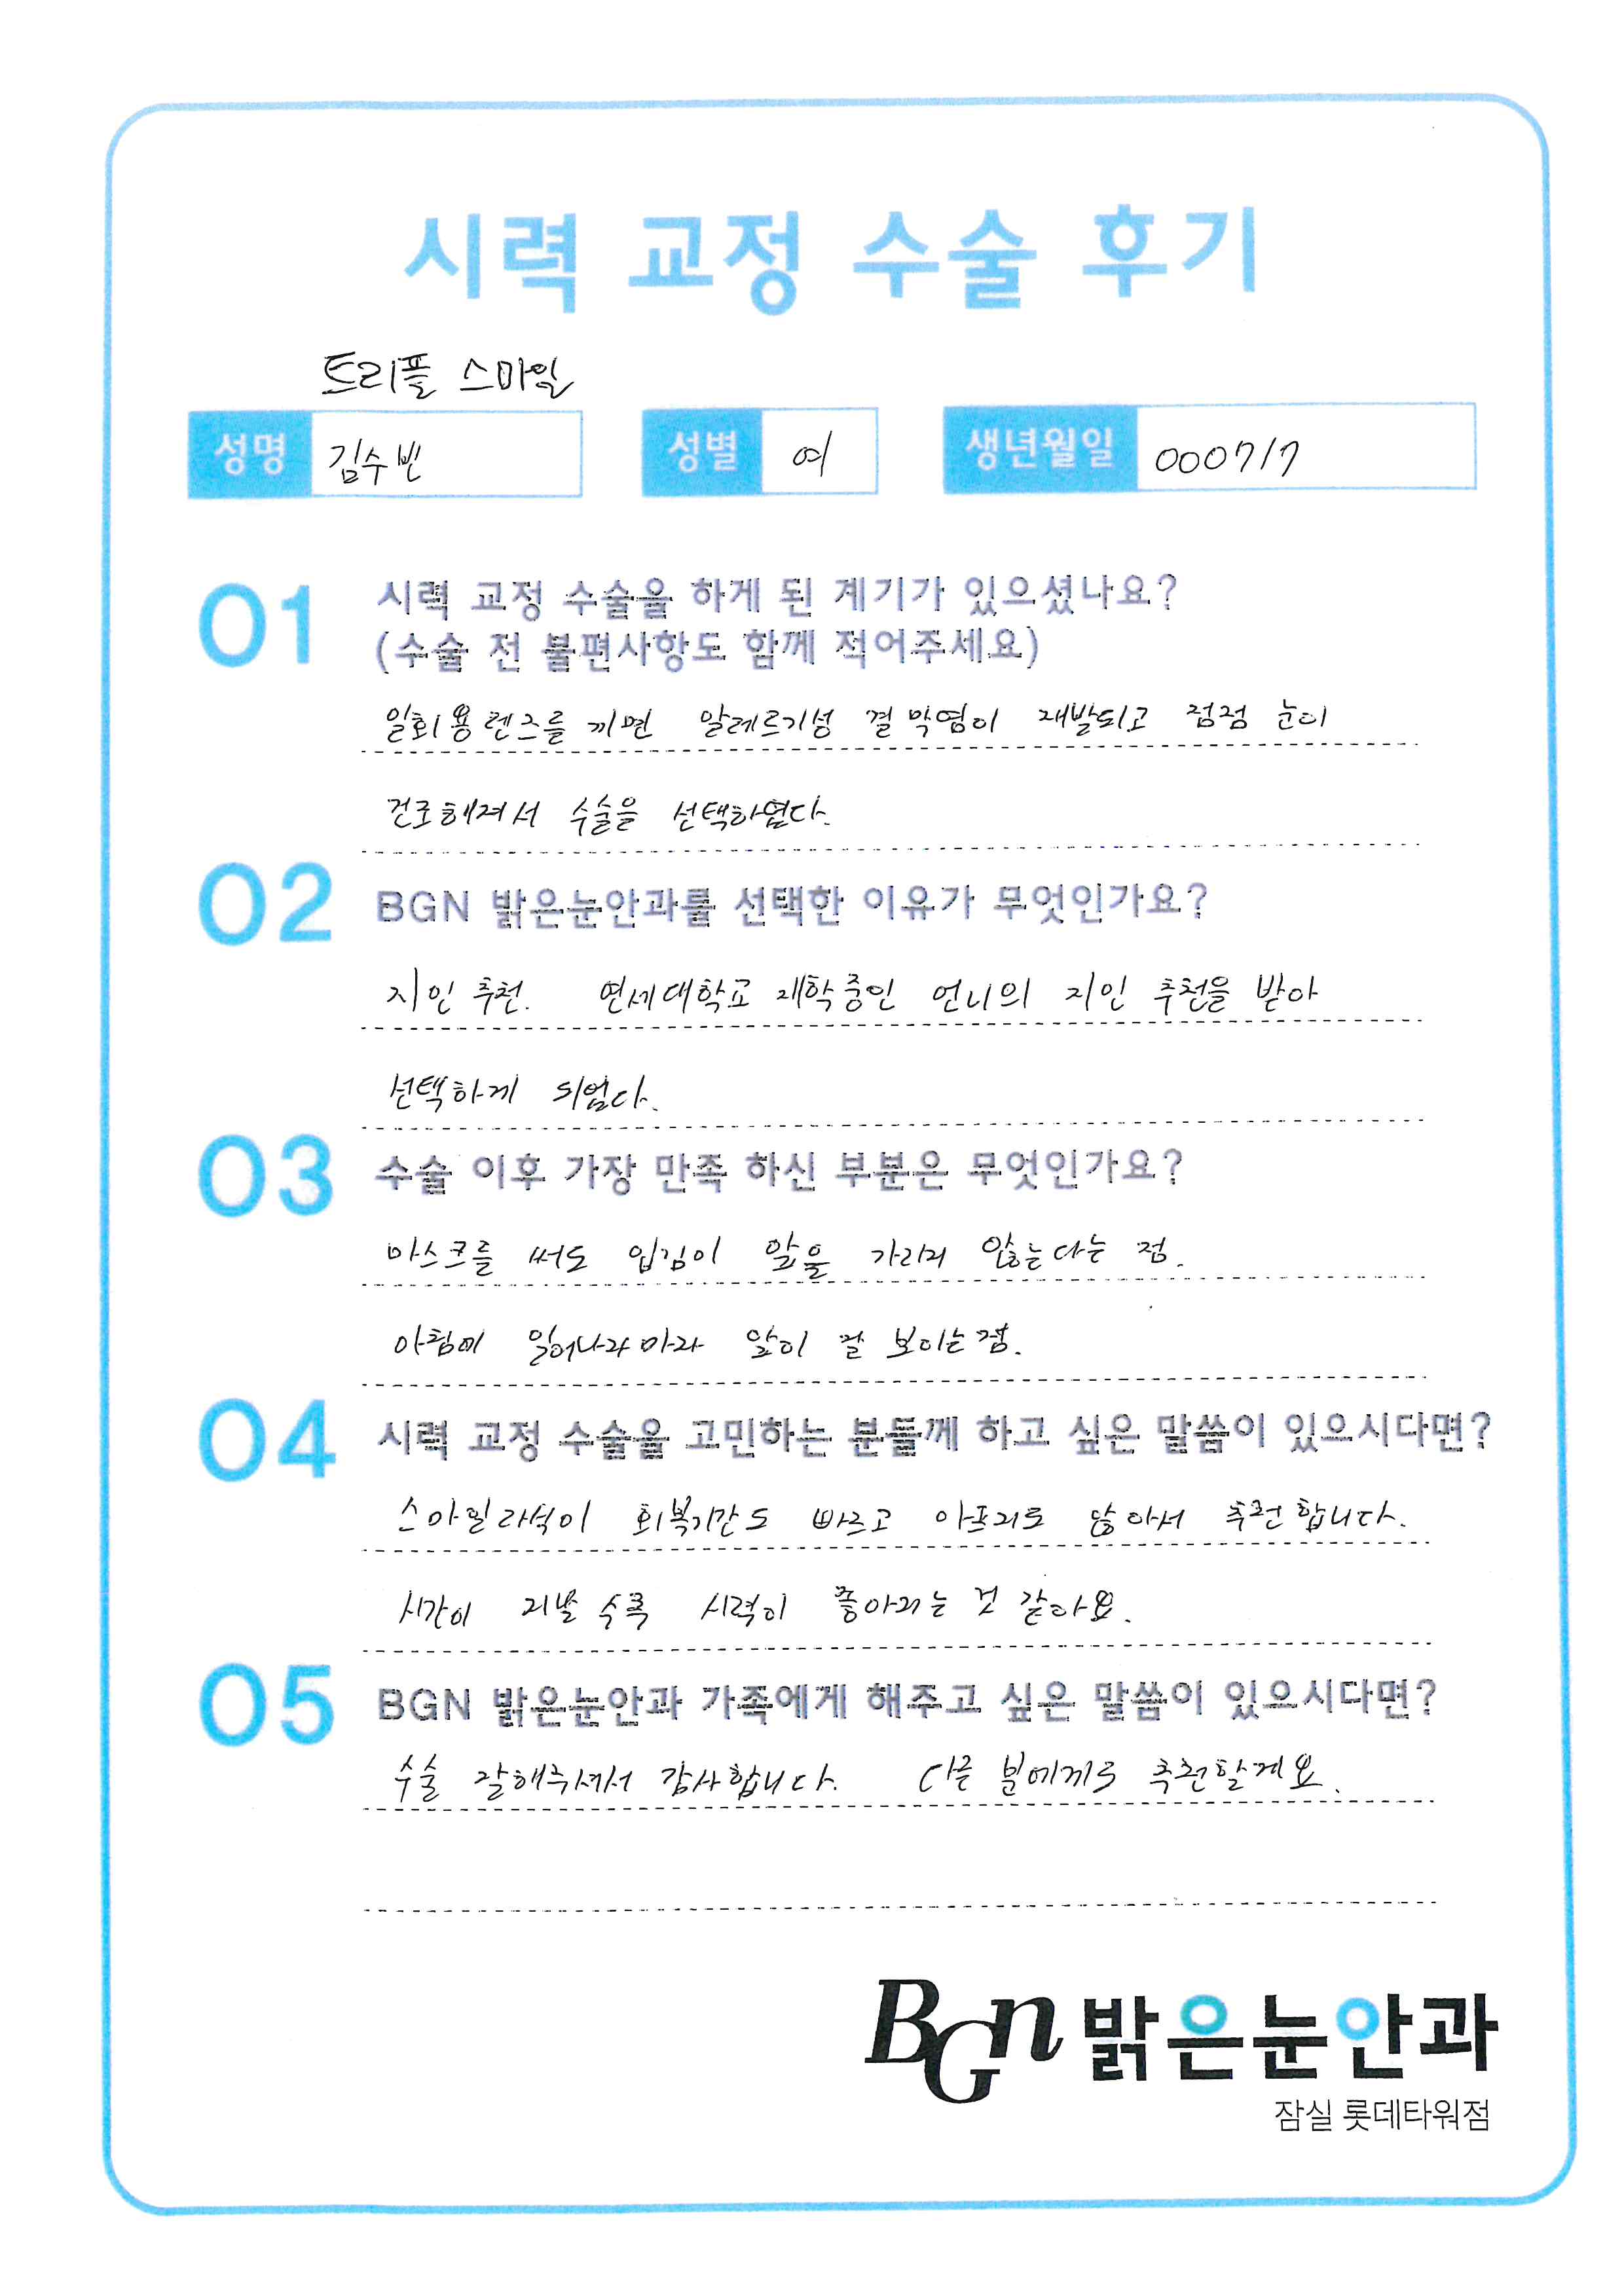 시력 교정 수술 후기
트리플 스마일
성명 김수빈 성별 여 생년월일 000717
01 시력 교정 수술을 하게 된 계기가 있으셨나요?
(수술 전 불편사항도 함께 적어주세요)
일회용렌즈를 끼면 알레르기성 결막염이 재발되고 점점 눈이
건조해져서 수술을 선택하였다.
02 BGN 밝은눈안과를 선택한 이유가 무엇인가요?
지인 추천. 연세대학교 재학중인 언니의 지인 추천을 받아
선택하게 되었다.
03 수술 이후 가장 만족 하신 부분은 무엇인가요?
마스크를 써도 입김이 앞을 가리지 않는다는 점.
아침에 일어나자마자 앞이 잘 보이는점.
04 시력 교정 수술을 고민하는 분들께 하고 싶은 말씀이 있으시다면?
스마일라식이 회복기간도 빠르고 아프지도 않아서 추천합니다.
시간이 지날 수록 시력이 좋아지는 것 같아요.
05 BGN 밝은눈안과 가족에게 해주고 싶은 말씀이 있으시다면?
수술 잘해주셔서 감사합니다. 다른 분에게도 추천할게요.
BGn 밝은눈안과
잠실 롯데타워점